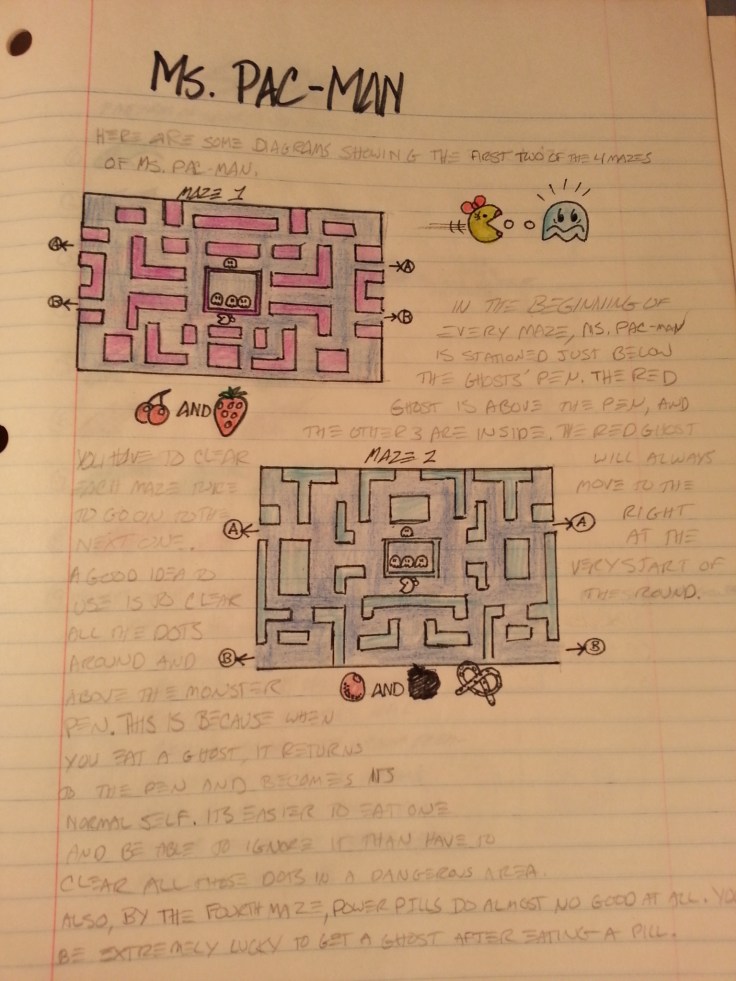 MS. PAC-MAN
HERE ARE SOME DIAGRAMS SHOWING THE FIRST TWO OF THE 4 MAZES
OF MS. PAC-MAN.
MAZE 1
A A
B B
IN THE BEGINNING OF
EVERY MAZE, MS. PAC-MAN
IS STATIONED JUST BELOW
THE GHOSTS' PEN. THE RED
GHOST IS ABOVE THE PEN, AND
THE OTHER 3 ARE INSIDE. THE RED GHOST
WILL ALWAYS
MOVE TO THE
RIGHT
AT THE
VERY START OF
THE ROUND.
AND
MAZE 2
A A
B B
AND
YOU HAVE TO CLEAR
EACH MAZE TWICE
TO GO ON TO THE
NEXT ONE.
A GOOD IDEA TO
USE IS TO CLEAR
ALL THE DOTS
AROUND AND
ABOVE THE MONSTER
PEN. THIS IS BECAUSE WHEN
YOU EAT A GHOST, IT RETURNS
TO THE PEN AND BECOMES ITS
NORMAL SELF. ITS EASIER TO EAT ONE
AND BE ABLE TO IGNORE IT THAN HAVE TO
CLEAR ALL THOSE DOTS IN A DANGEROUS AREA.
ALSO, BY THE FOURTH MAZE, POWER PILLS DO ALMOST NO GOOD AT ALL.
BE EXTREMELY LUCKY TO GET A GHOST AFTER EATING A PILL.